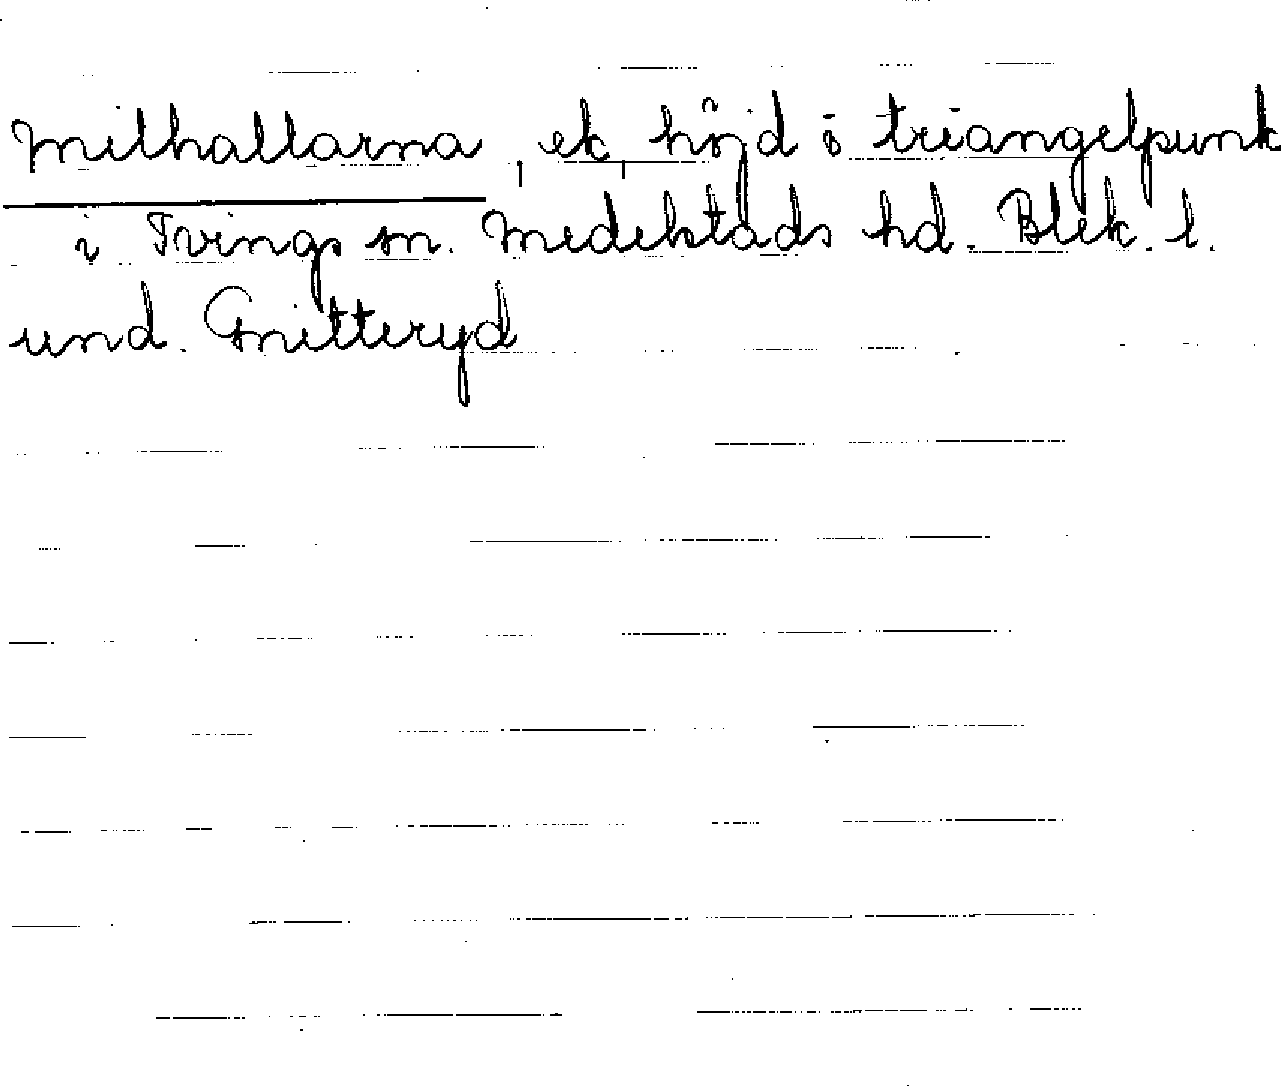 Milhallarna, ek, höjd o triangelpunk
i Tvings sn. Medelstads hd. Blek. l.
und. Gnetteryd